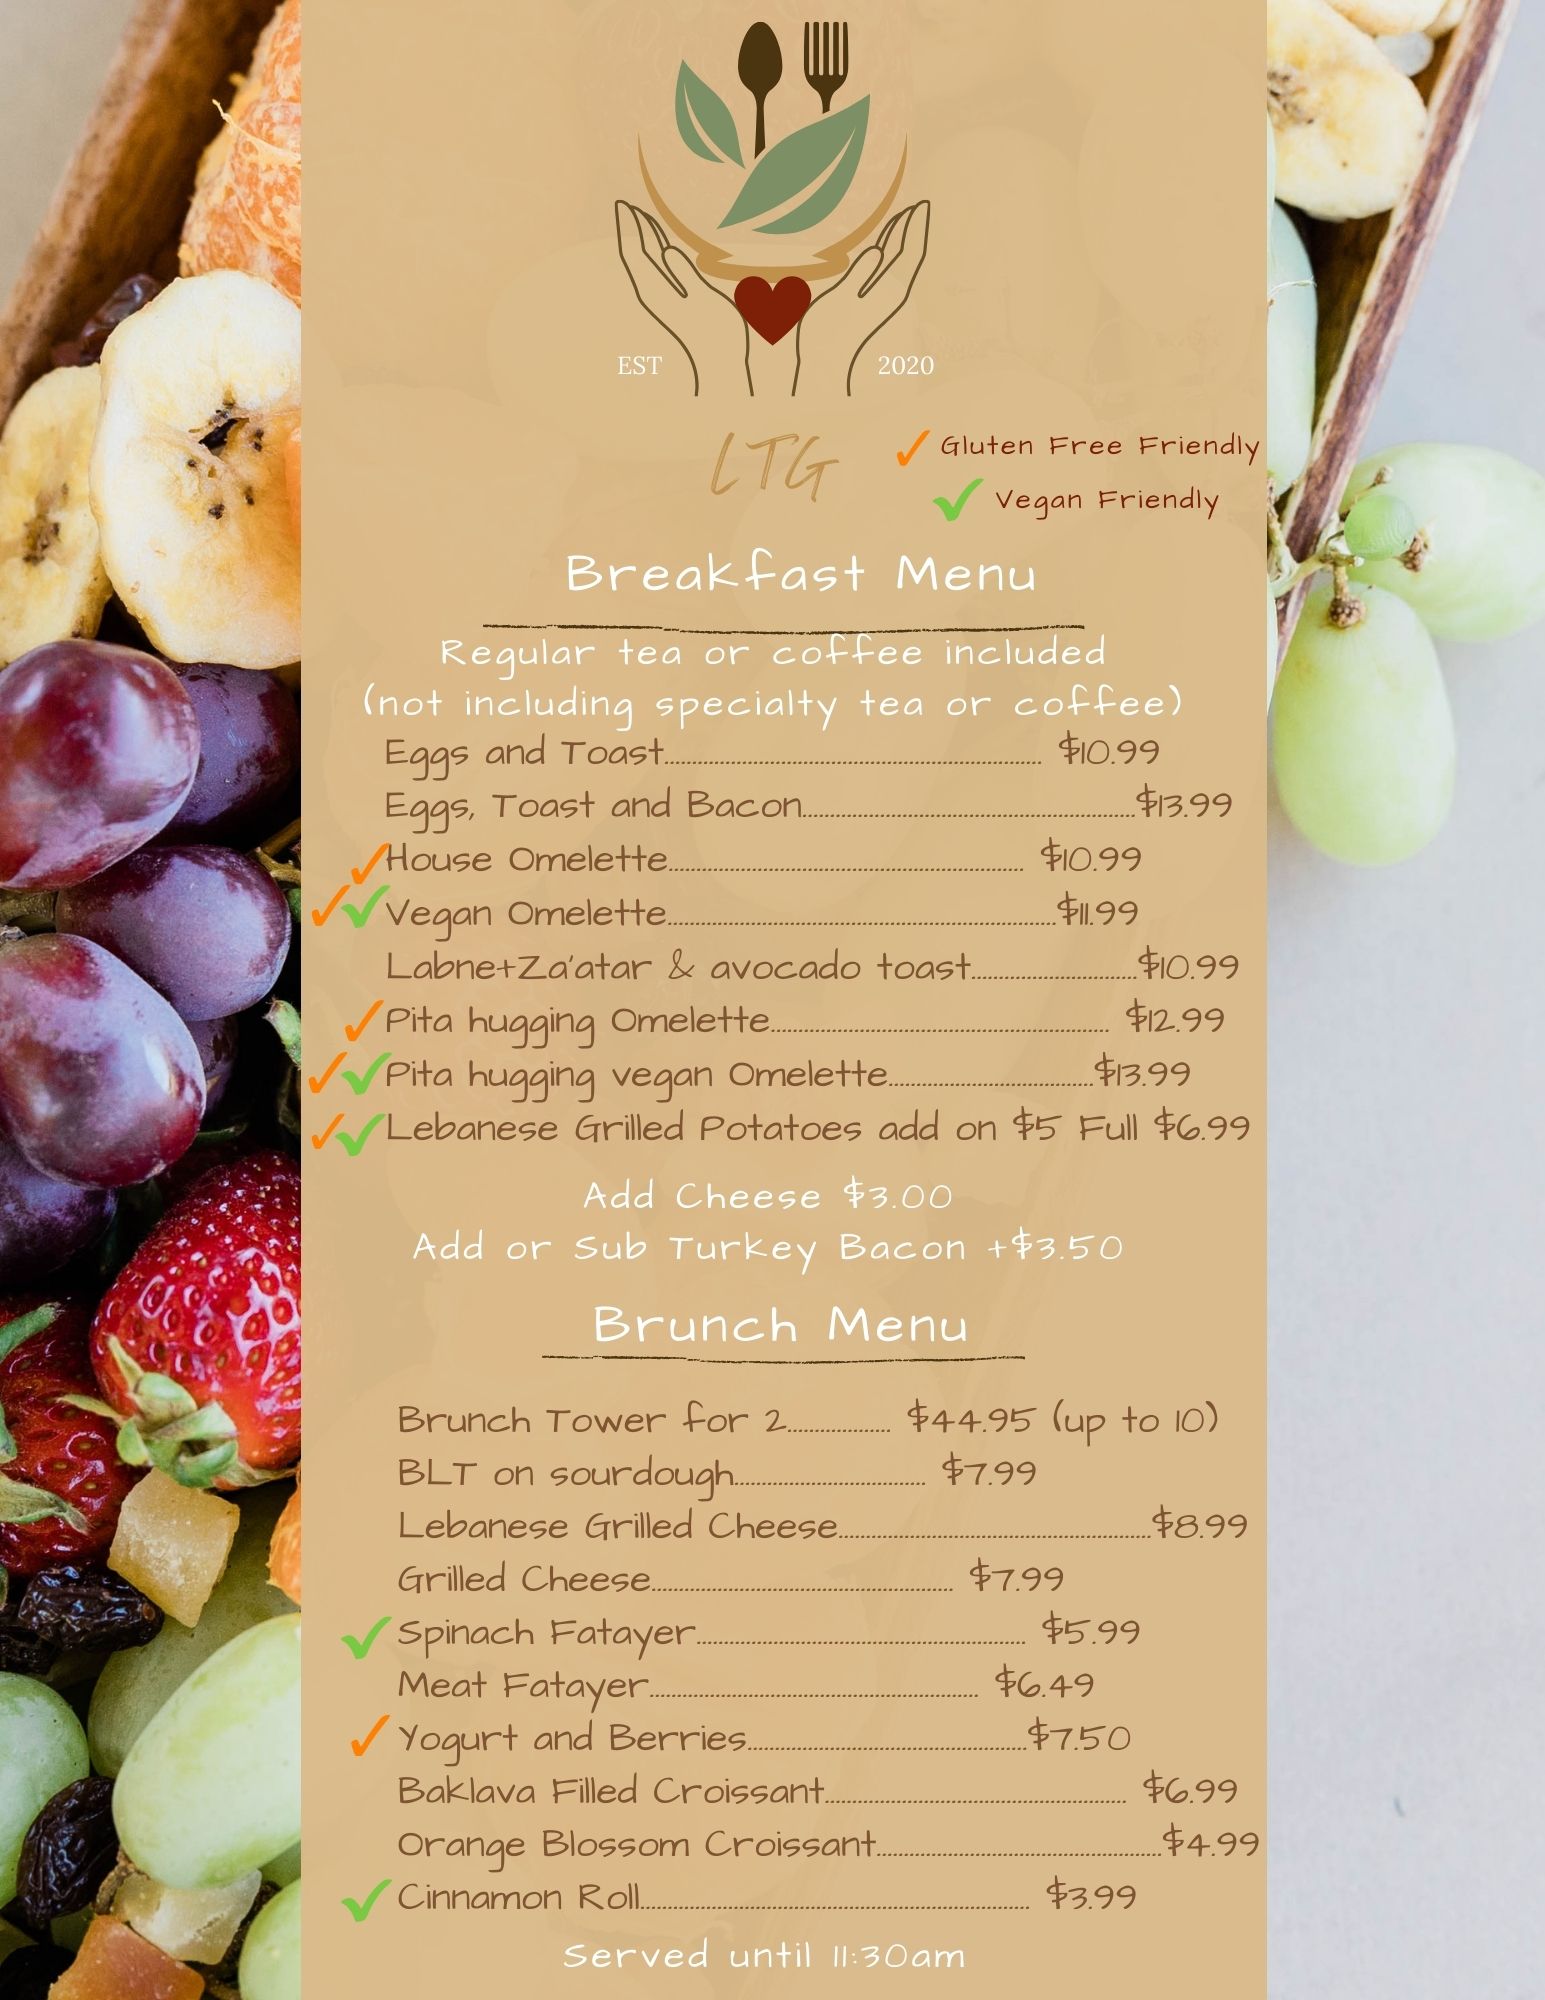 EST 2020
LTG
Gluten Free Friendly
Vegan Friendly
Breakfast Menu
Regular tea or coffee included
(not including specialty tea or coffee)
Eggs and Toast.................... $10.99
Eggs, Toast and Bacon....................$13.99
House Omelette.................... $10.99
Vegan Omelette....................$11.99
Labne+Za'atar & avocado toast....................$10.99
Pita hugging Omelette.................... $12.99
Pita hugging vegan Omelette....................$13.99
Lebanese Grilled Potatoes add on $5 Full $6.99
Add Cheese $3.00
Add or Sub Turkey Bacon +$3.50
Brunch Menu
Brunch Tower for 2.................... $44.95 (up to 10)
BLT on sourdough.................... $7.99
Lebanese Grilled Cheese....................$8.99
Grilled Cheese.................... $7.99
Spinach Fatayer.................... $5.99
Meat Fatayer.................... $6.49
Yogurt and Berries....................$7.50
Baklava Filled Croissant.................... $6.99
Orange Blossom Croissant....................$4.99
Cinnamon Roll.................... $3.99
Served until 11:30am